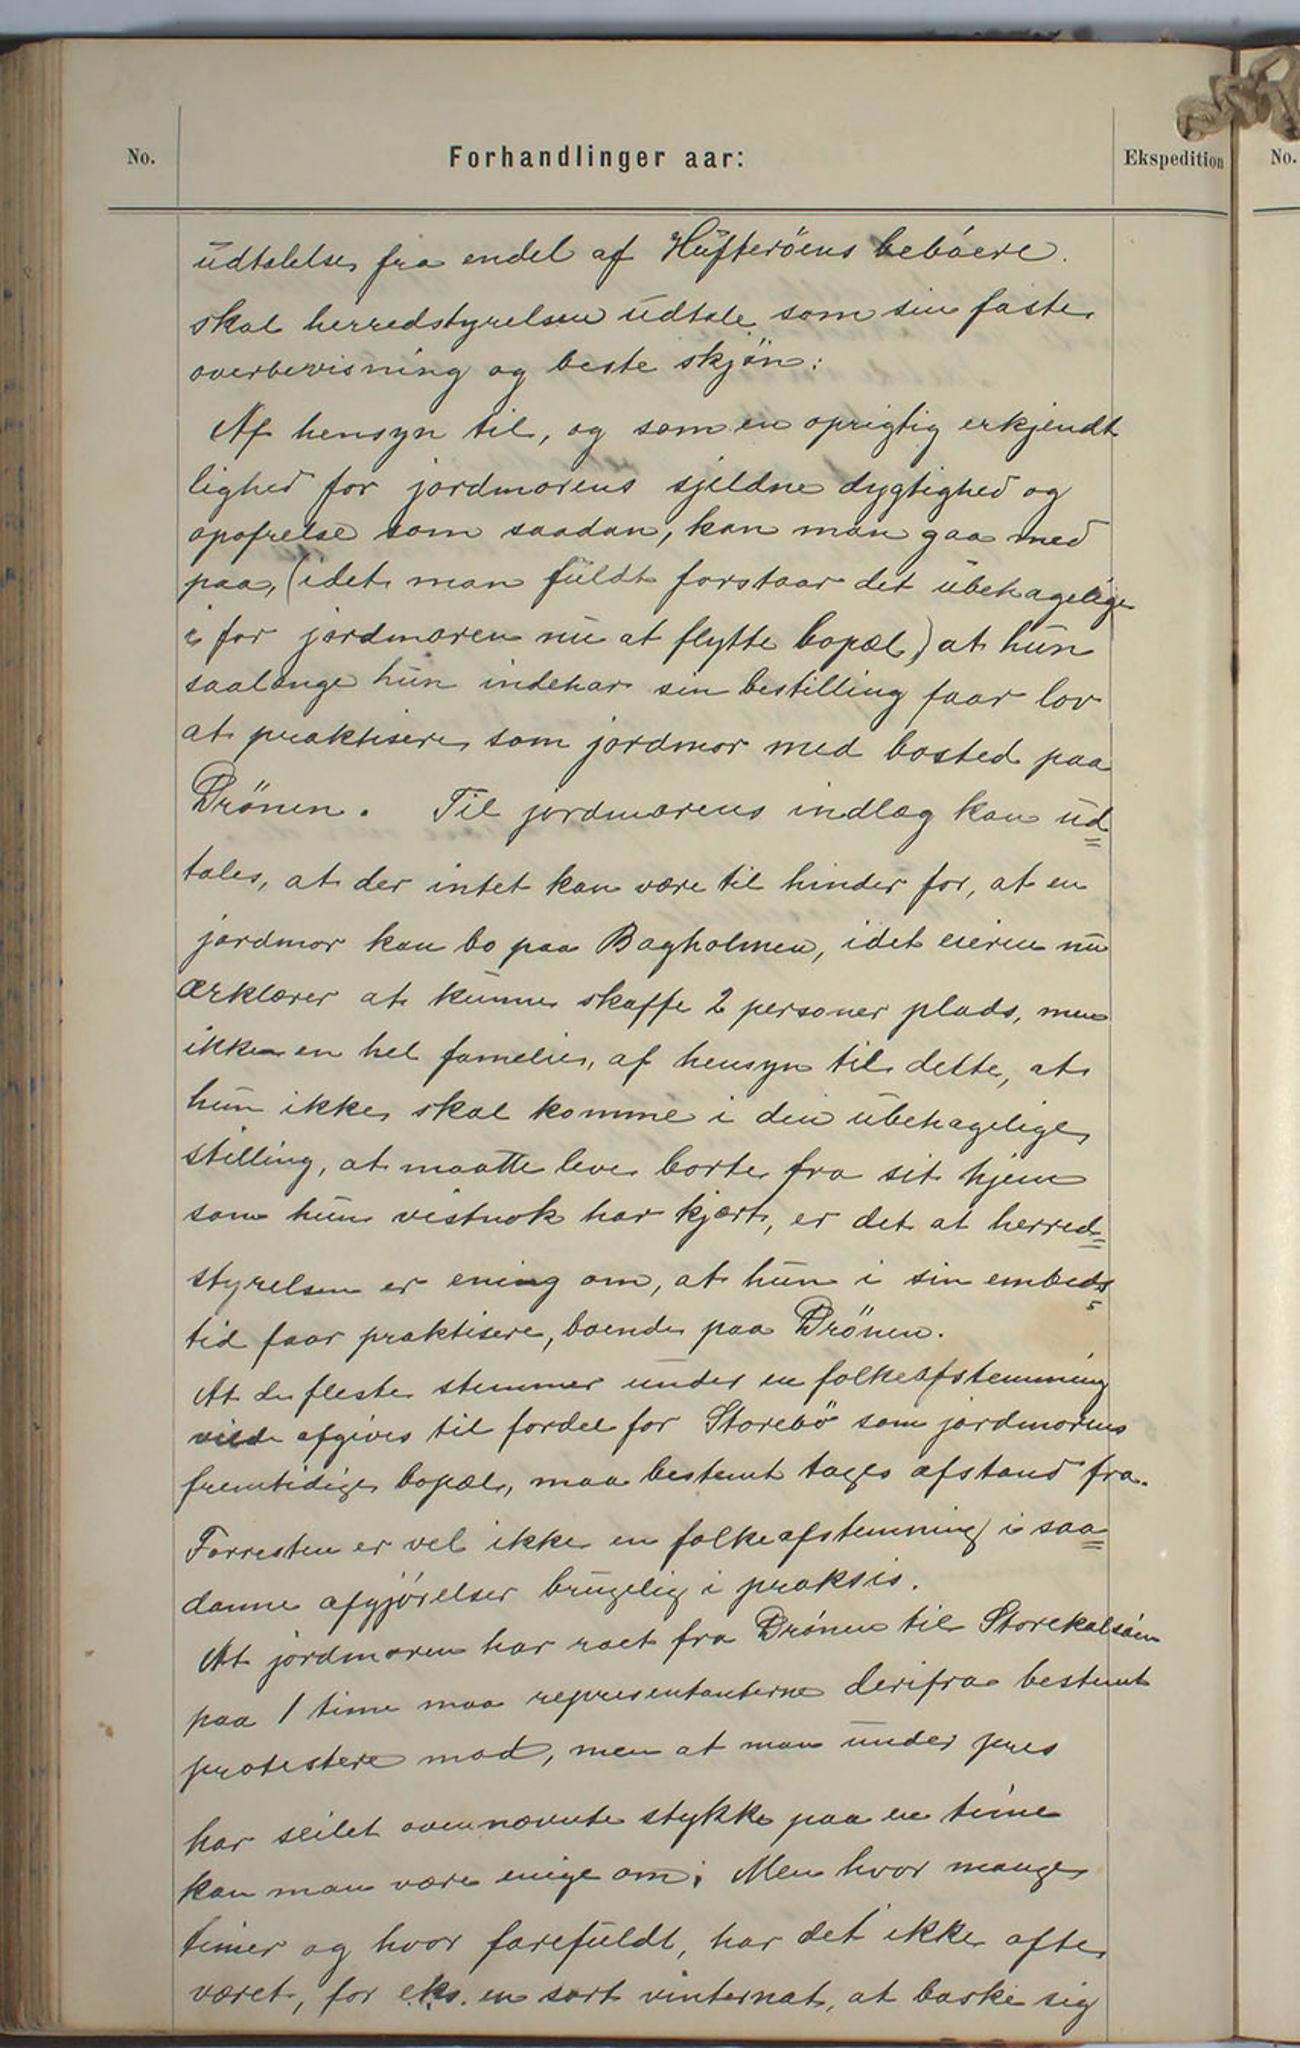 No.
Forhandlinger aar:
Ekspedition
No.
udtalelse fra endel af Hufteröens beboere.
skal herredstyrelsen udtale som sin faste
overbevisning og beste skjön:
Af hensyn til, og som en oprigtig erkjendt
lighed for jordmorens sjeldne dygtighed og
opofrelse som saadan, kan man gaa med
paa, (idet man fuldt forstaar det ubehagelige
i for jordmoren nu at flytte bopæl) at hun
saalænge hun indehar sin bestilling faar lov
at praktisere som jordmor med bosted paa
Drönen. Til jordmorens indlæg kan ud=
tales, at der intet kan være til hinder for, at en
jordmor kan bo paa Bagholmen, idet eieren nu
erklærer at kunne skaffe 2 personer plads, men
ikke en hel famelie, af hensyn til dette, at
hun ikke skal komme i den ubehagelige
stilling, at maatte leve borte fra sit hjem
som hun vistnok har kjært, er det at herred=
styrelsen er ening om, at hun i sin embeds
tid faar praktisere, boende paa Drönen.
At de fleste stemmer under en folkeafstemning
vilde afgives til fordel for Storebö som jordmorens
fremtidige bopæl, maa bestemt tages afstand fra.
Forresten er vel ikke en folkeafstemning i saa=
danne afgjörelser brugelig i praksis.
At jordmoren har roet fra Drönen til Storekalsöen
paa 1 time maa representanterne derifra bestemt
protestere mod, men at man under pres
har seilet ovennævnte stykke paa en time
kan man være enige om; Men hvor mange
timer og hvor farefuldt, har det ikke ofte
været, for eks. en sort vinternat, at baske sig